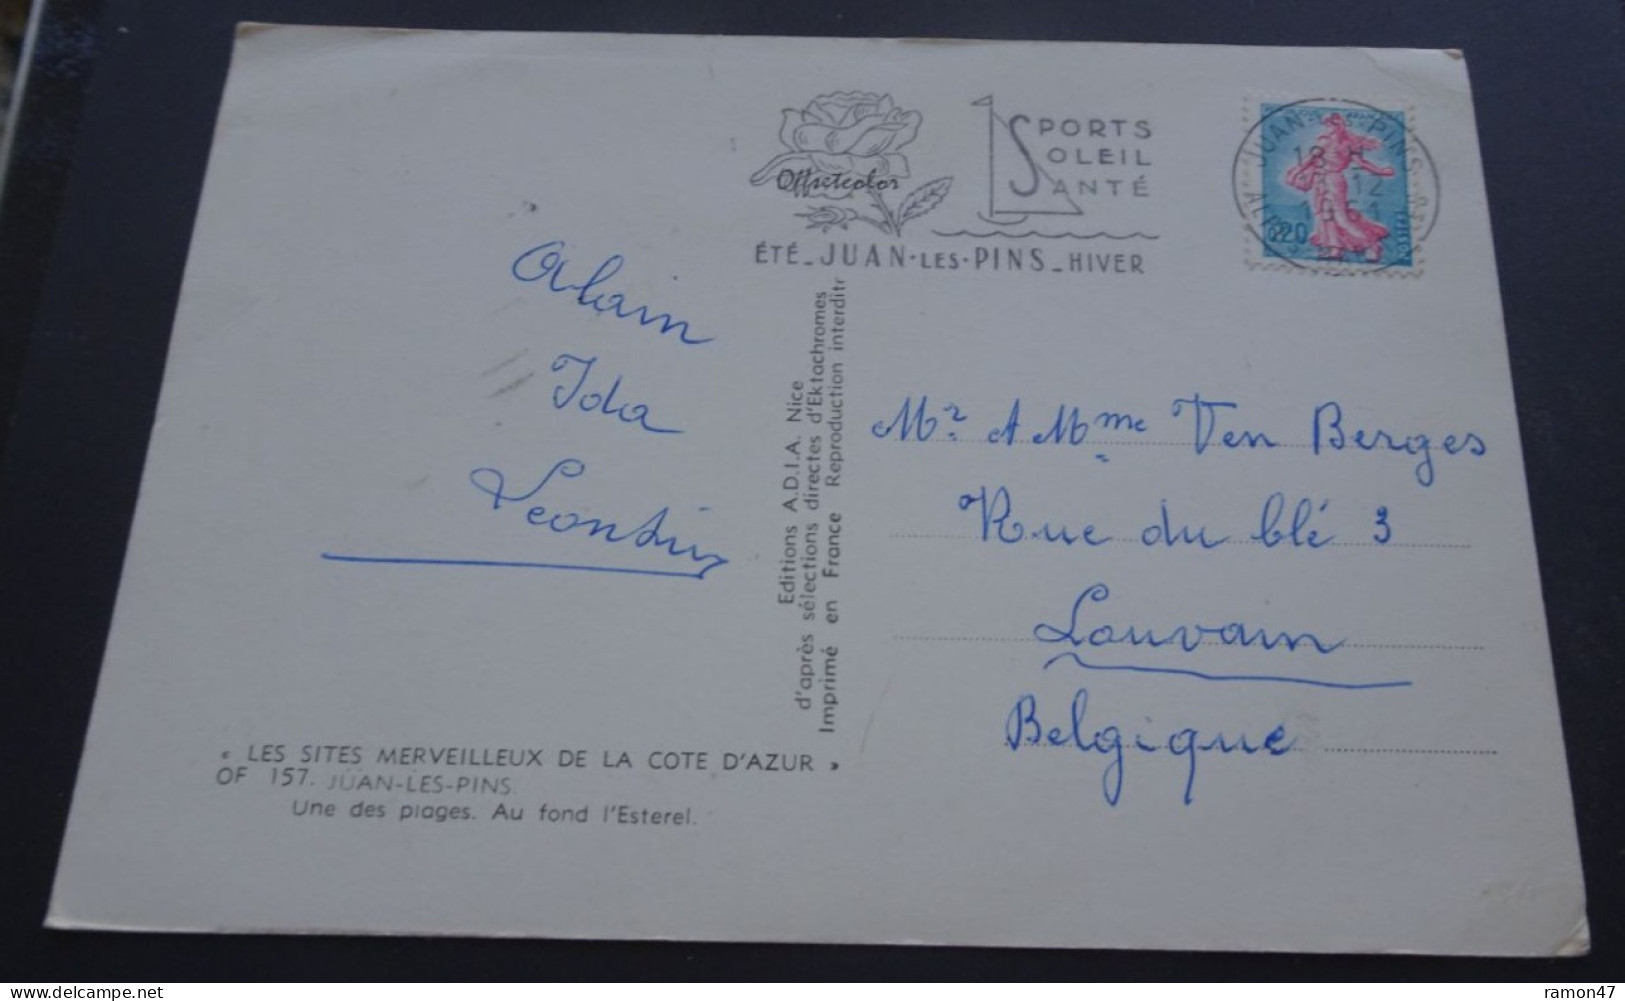 Offsetcolor
SPORTS
SOLEIL
SANTÉ
ÉTÉ_JUAN·LES·PINS_HIVER
JUAN-LES-PINS
18 H
12
1961
0,20
Alain
Ida
Leontine
Editions A.D.I.A. Nice
d'après sélections directes d'Ektachromes
Imprimé en France Reproduction interdite
Mr. & Mme Ven Berges
Rue du blé 3
Louvain
Belgique
« LES SITES MERVEILLEUX DE LA COTE D'AZUR »
OF 157. JUAN-LES-PINS.
Une des plages. Au fond l'Esterel.
ramon47